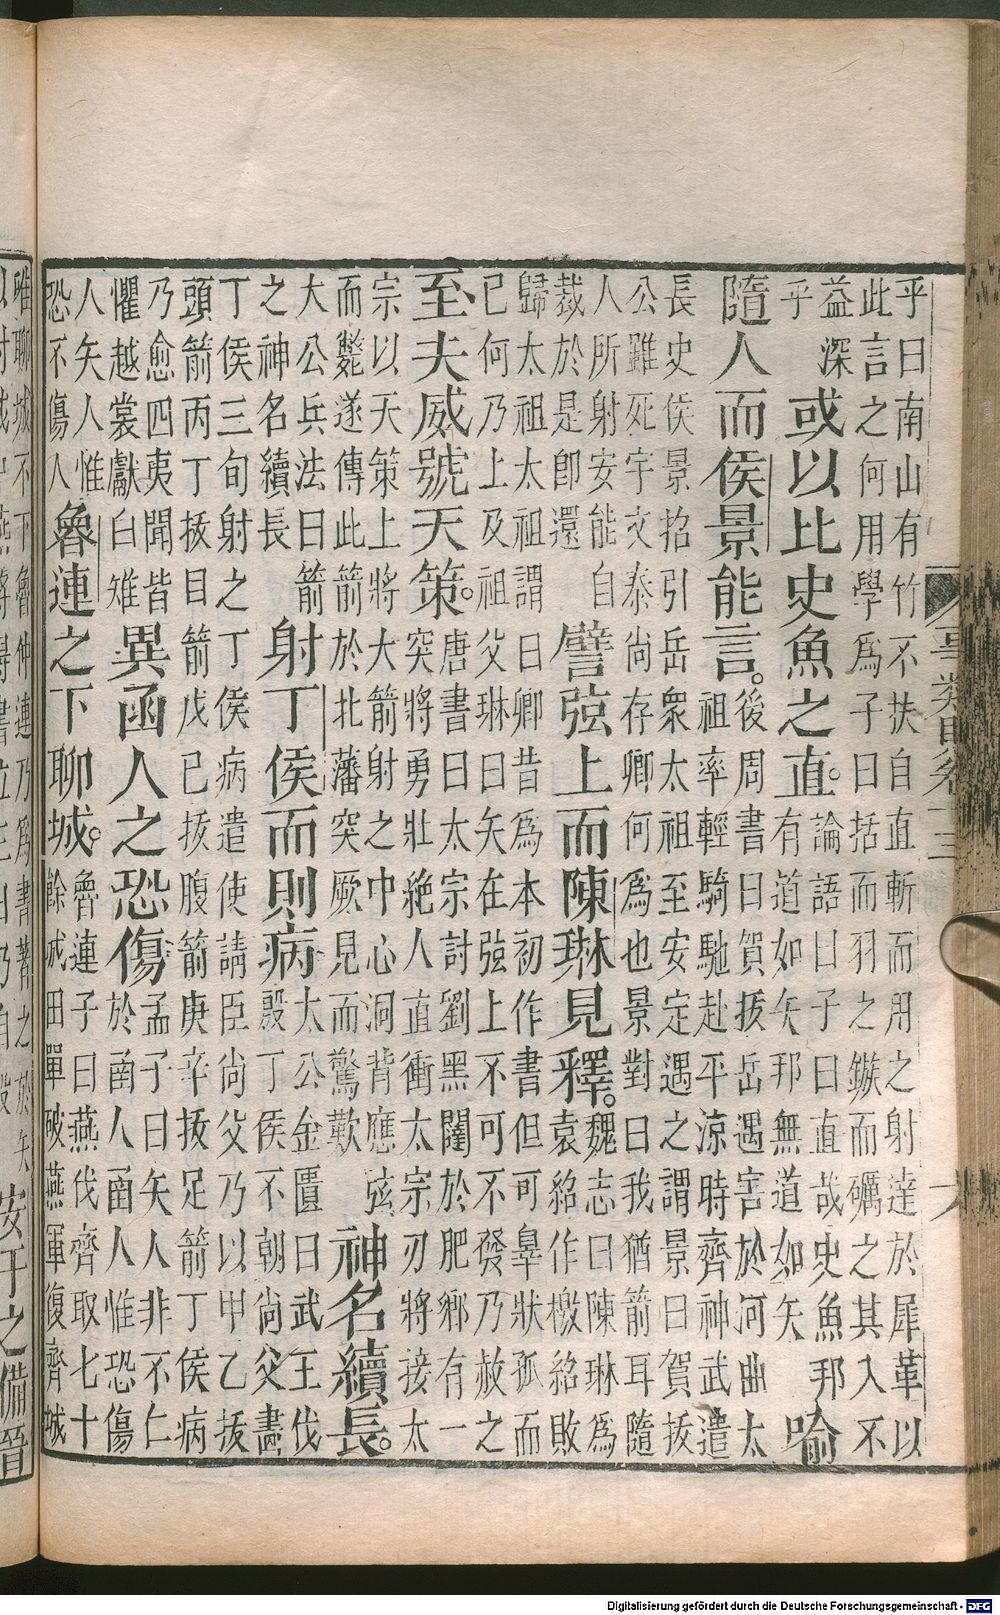 乎曰南山有竹不扶自直斬而用之射達於犀革以
此言之何用學爲子曰括而羽之鏃而礪之其入不
益深
乎
或以比史魚之直。
論語曰子曰直哉史魚邦
有道如矢邦無道如矢
喻
隨人而侯景能言。
後周書曰賀拔岳遇害於河曲太
祖率輕騎馳赴平涼時齊神武遣
長史侯景招引岳衆太祖至安定遇之謂景曰賀拔
公雖死宇文泰尚存卿何爲也景對曰我猶箭耳隨
人所射安能自
裁於是即還
譬弦上而陳琳見釋。
魏志曰陳琳爲
袁紹作檄紹敗
歸太祖太祖謂曰卿昔爲本初作書但可辠狀孤而
已何乃上及祖父琳曰矢在弦上不可不發乃赦之
至夫威號天策。
唐書曰太宗討劉黑闥於肥鄉有一
突將勇壯絶人直衝太宗刃將接太
宗以天策上將大箭射之中心洞背應弦
而斃遂傳此箭於北藩突厥見而驚歎
神名續長。
大公兵法曰箭
之神名續長
射丁侯而則病
太公金匱曰武王伐
殷丁侯不朝尚父畫
丁侯三旬射之丁侯病遣使請臣尚父乃以甲乙拔
頭箭丙丁拔目箭戊已拔腹箭庚辛拔足箭丁侯病
乃愈四夷聞皆
懼越裳獻白雉
異函人之恐傷
孟子曰矢人非不仁
於函人函人惟恐傷
人矢人惟
恐不傷人
魯連之下聊城。
魯連子曰燕伐齊取七十
餘城田單破燕軍復齊城
唯聊城不下魯仲連乃爲書著之於矢
安于之備晉
Digitalisierung gefördert durch die Deutsche Forschungsgemeinschaft - DFG